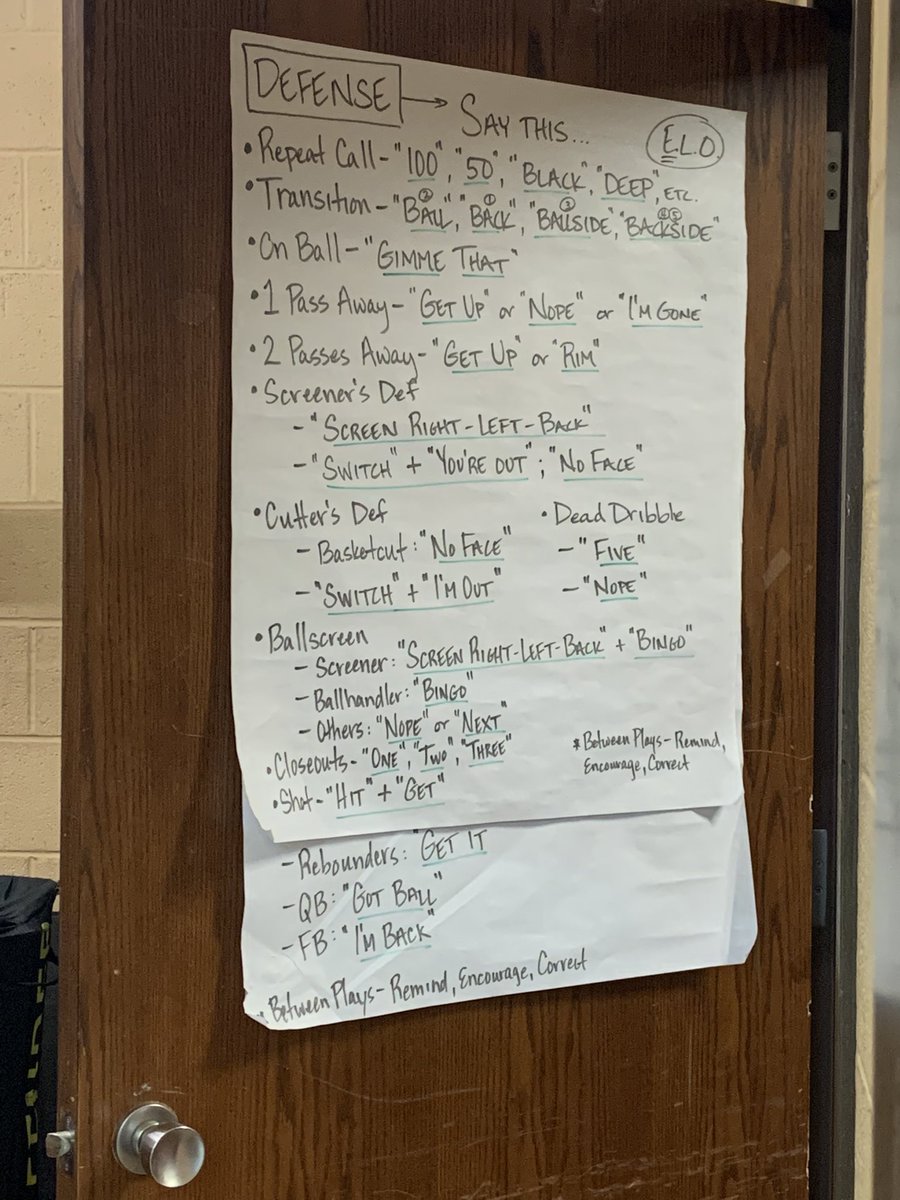 DEFENSE → SAY THIS...
E.L.O
• Repeat Call - "100", "50", "BLACK", "DEEP", ETC.
② ① ③ ④⑤
• Transition - "BALL", "BACK", "BALLSIDE", "BACKSIDE"
• On Ball - "GIMME THAT"
• 1 Pass Away - "GET UP" or "NOPE" or "I'M GONE"
• 2 Passes Away - "GET UP" or "RIM"
• Screener's Def
- "SCREEN RIGHT-LEFT-BACK"
- "SWITCH" + "YOU'RE OUT"; "NO FACE"
• Cutter's Def
- Basketcut: "NO FACE"
- "SWITCH" + "I'M OUT"
• Dead Dribble
- "FIVE"
- "NOPE"
• Ballscreen
- Screener: "SCREEN RIGHT-LEFT-BACK" + "BINGO"
- Ballhandler: "BINGO"
- Others: "NOPE" or "NEXT"
• Closeouts - "ONE", "TWO", "THREE"
• Shot - "HIT" + "GET"
* Between Plays - Remind,
Encourage, Correct
- Rebounders: "GET IT
- QB: "GOT BALL"
- FB: "I'M BACK"
• Between Plays - Remind, Encourage, Correct